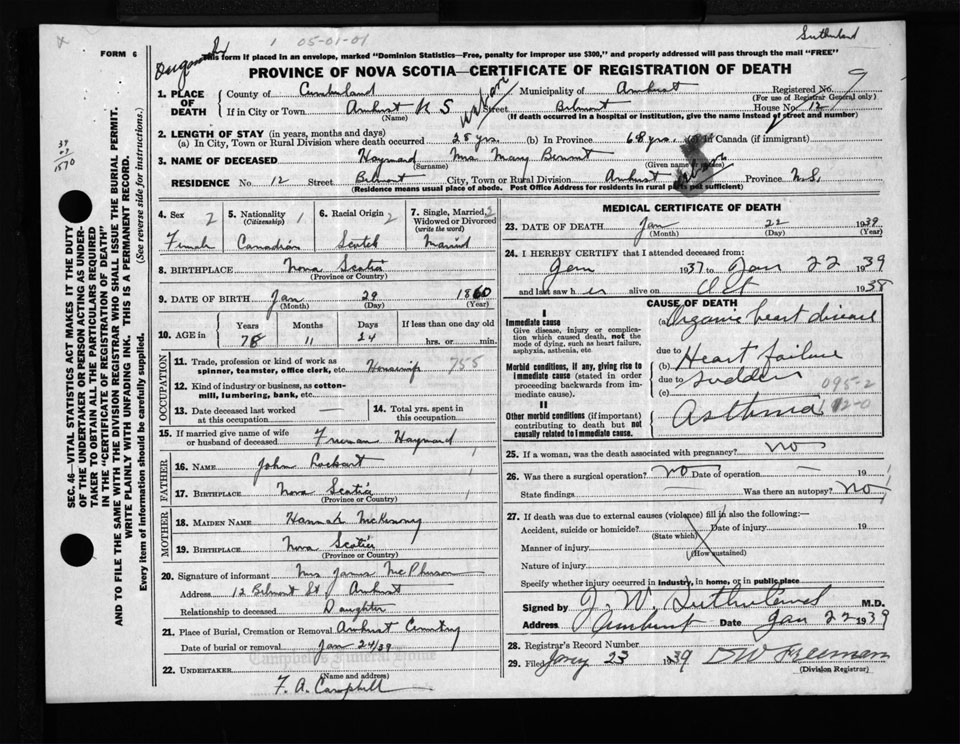 05-01-01
Sutherland
FORM 6
This form if placed in an envelope, marked "Dominion Statistics—Free, penalty for improper use $300," and properly addressed will pass through the mail "FREE"
PROVINCE OF NOVA SCOTIA—CERTIFICATE OF REGISTRATION OF DEATH
9
1. PLACE OF DEATH
County of Cumberland Municipality of Amherst Registered No.
(For use of Registrar General only)
If in City or Town Amherst N S Street Belmont House No. 12
(Name) (If death occurred in a hospital or institution, give the name instead of street and number)
2. LENGTH OF STAY (in years, months and days)
(a) In City, Town or Rural Division where death occurred 28 yrs. (b) In Province 68 yrs. Canada (if immigrant)
3. NAME OF DECEASED Hayward Mrs Mary
(Surname) (Given name or names)
RESIDENCE No. 12 Street Belmont City, Town or Rural Division Amherst Province N.S.
(Residence means usual place of abode. Post Office Address for residents in rural parts not sufficient)
SEC. 46—VITAL STATISTICS ACT MAKES IT THE DUTY
OF THE UNDERTAKER OR PERSON ACTING AS UNDER-
TAKER TO OBTAIN ALL THE PARTICULARS REQUIRED
IN THE "CERTIFICATE OF REGISTRATION OF DEATH"
AND TO FILE THE SAME WITH THE DIVISION REGISTRAR WHO SHALL ISSUE THE BURIAL PERMIT.
WRITE PLAINLY WITH UNFADING INK. THIS IS A PERMANENT RECORD.
Every item of information should be carefully supplied. (See reverse side for instructions.)
4. Sex 2
Female
5. Nationality 1
(Citizenship)
Canadian
6. Racial Origin 2
Scotch
7. Single, Married, 2
Widowed or Divorced
(write the word)
Married
8. BIRTHPLACE Nova Scotia
(Province or Country)
9. DATE OF BIRTH Jan 29 1860
(Month) (Day) (Year)
10. AGE in
Years Months Days If less than one day old
78 11 24 hrs. or min.
OCCUPATION
11. Trade, profession or kind of work as
spinner, teamster, office clerk, etc. Housewife 755
12. Kind of industry or business, as cotton-
mill, lumbering, bank, etc.
13. Date deceased last worked
at this occupation —
14. Total yrs. spent in
this occupation.
15. If married give name of wife
or husband of deceased Freeman Hayward
FATHER
16. NAME John Lockart
17. BIRTHPLACE Nova Scotia
(Province or Country)
MOTHER
18. MAIDEN NAME Hannah McKinney
19. BIRTHPLACE Nova Scotia
(Province or Country)
20. Signature of informant Mrs James McPherson
Address 12 Belmont St Amherst
Relationship to deceased Daughter
21. Place of Burial, Cremation or Removal Amherst Cemetery
Date of burial or removal Jan 24/39
Campbell's Funeral Home
22. UNDERTAKER
(Name and address)
F. A. Campbell
MEDICAL CERTIFICATE OF DEATH
23. DATE OF DEATH Jan 22 1939
(Month) (Day) (Year)
24. I HEREBY CERTIFY that I attended deceased from:
Jan 1937 to Jan 22 1939
and last saw her alive on Oct 1938
CAUSE OF DEATH
I
Immediate cause
Give disease, injury or complica-
tion which caused death, not the
mode of dying, such as heart failure,
asphyxia, asthenia, etc
(a) Organic heart disease
due to
(b) Heart failure
Morbid conditions, if any, giving rise to
immediate cause (stated in order
proceeding backwards from im-
mediate cause).
due to
(c) sudden
095-2
II
Other morbid conditions (if important)
contributing to death but not
causally related to immediate cause.
Asthma
25. If a woman, was the death associated with pregnancy? no
26. Was there a surgical operation? no Date of operation — 19
State findings — Was there an autopsy? No
27. If death was due to external causes (violence) fill in also the following:
Accident, suicide or homicide? Date of injury 19
(State which)
Manner of injury
(How sustained)
Nature of injury
Specify whether injury occurred in industry, in home, or in public place
Signed by J. W. Sutherland M.D.
Address Amherst Date Jan 22 1939
28. Registrar's Record Number
29. Filed Jany 23 1939 D W Freeman
(Division Registrar)